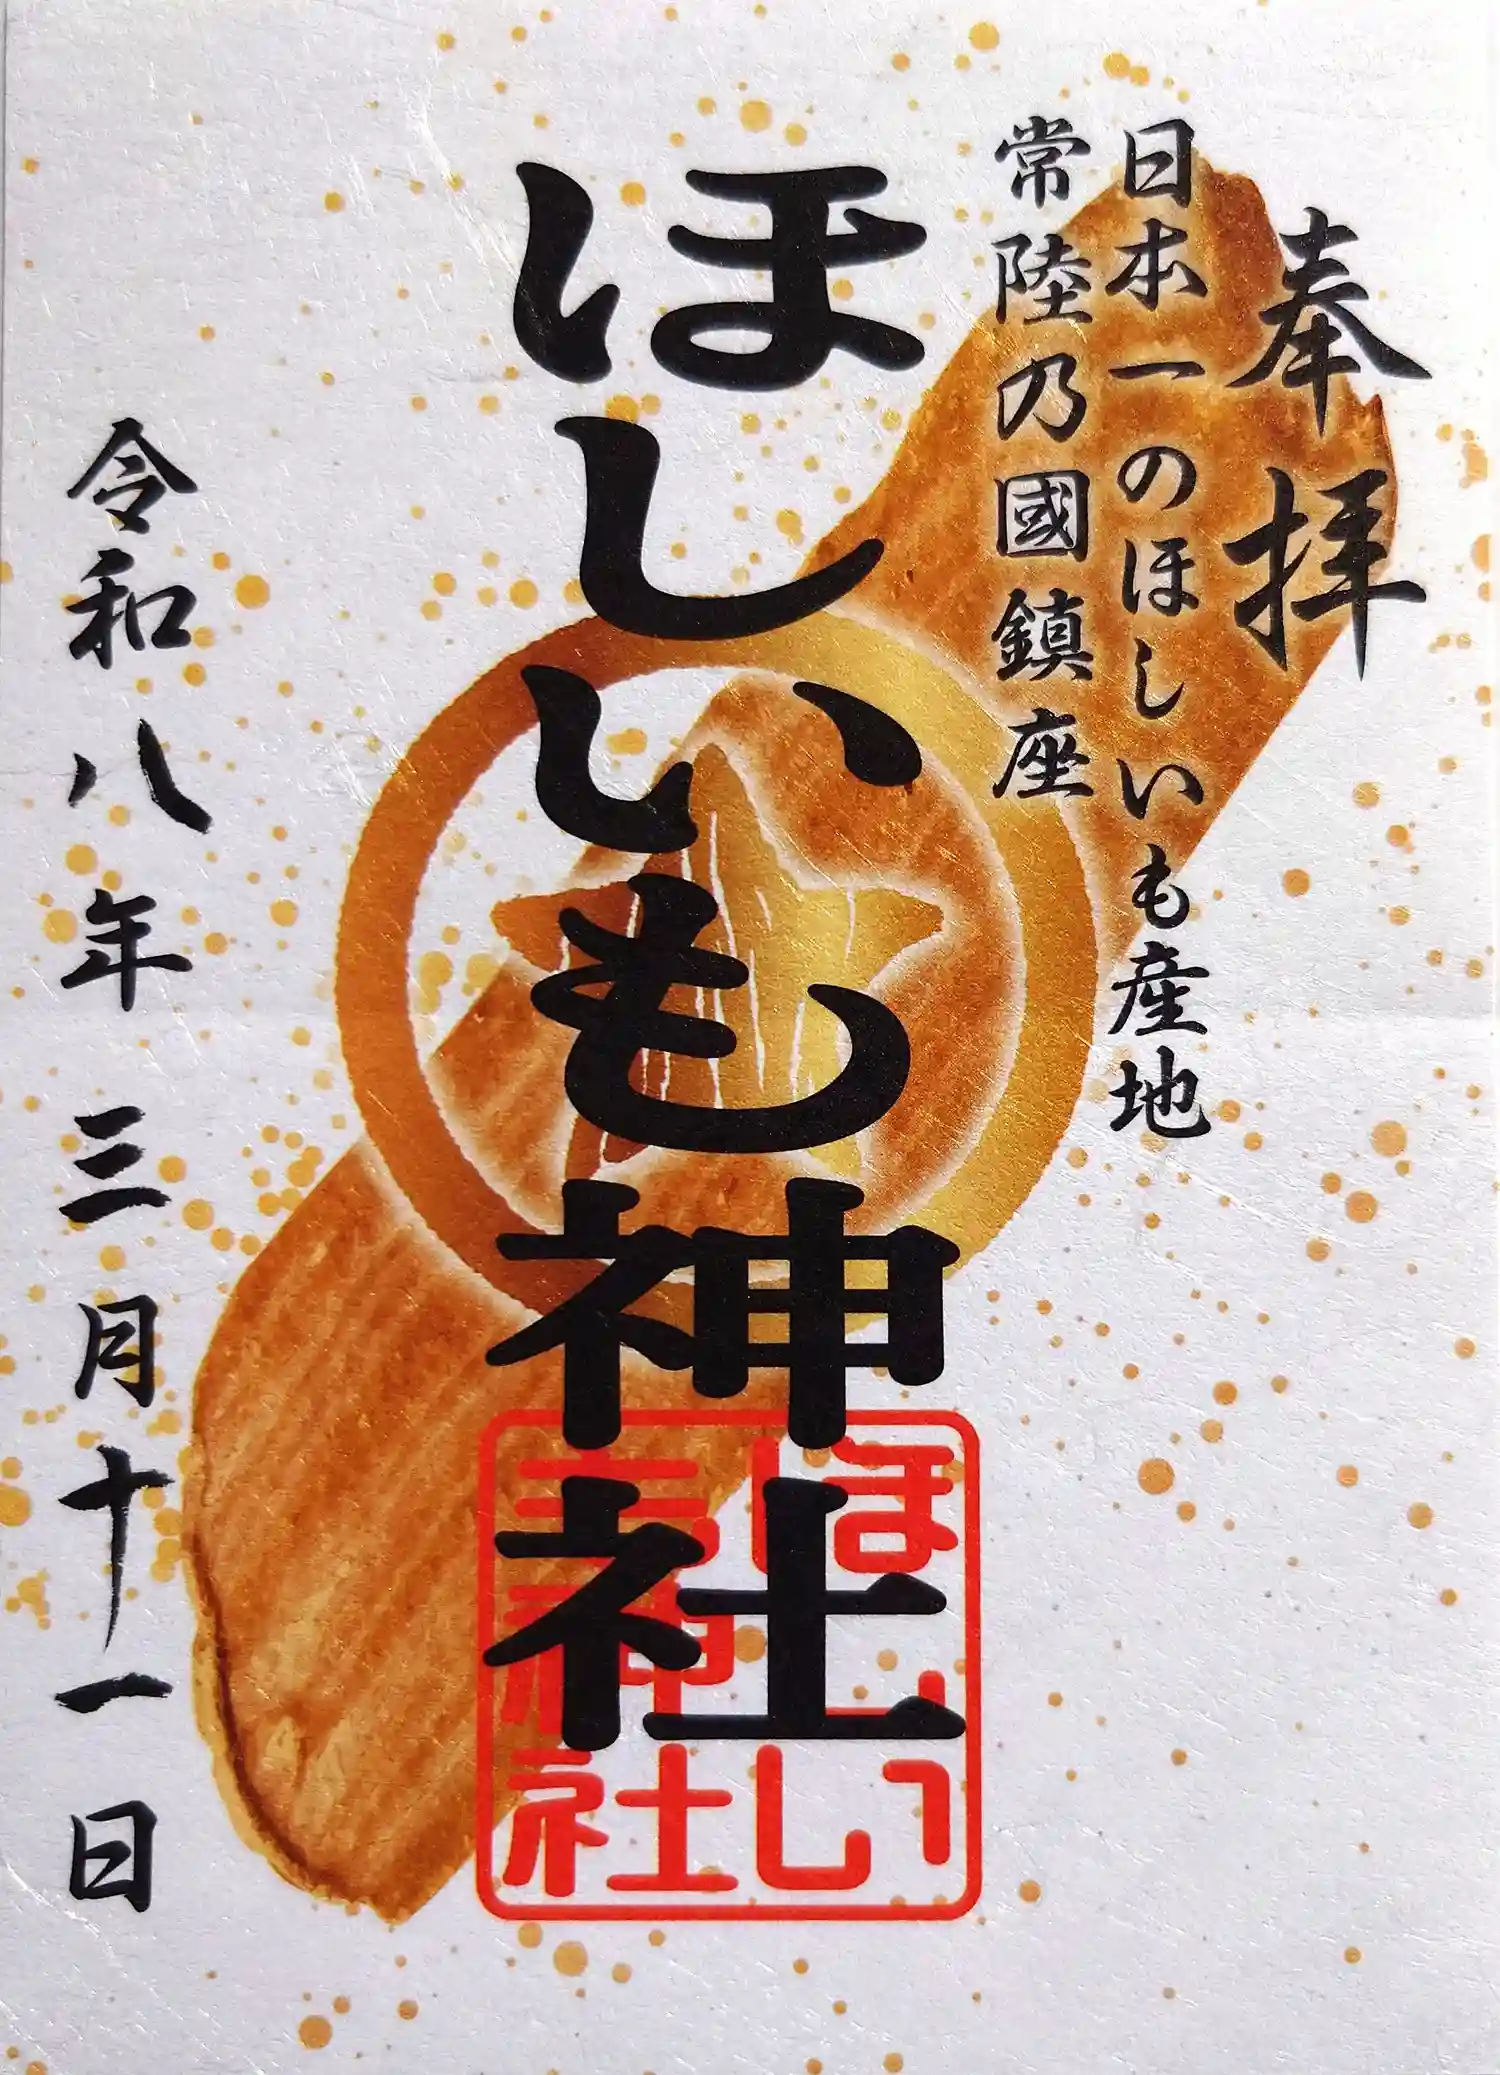 奉拝
日本一のほしいも産地
常陸乃國鎮座
ほしいも神社
ほしい
も神社
令和八年三月十一日